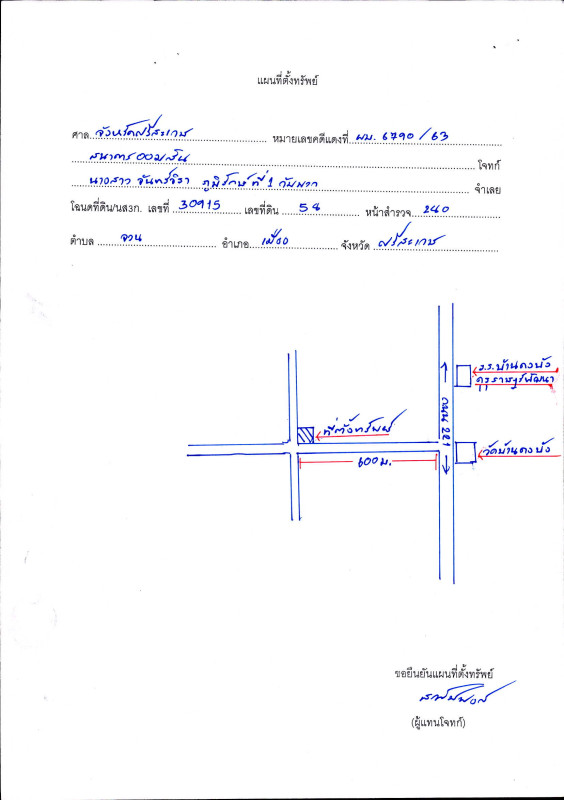 แผนที่ตั้งทรัพย์
ศาล จังหวัดศรีสะเกษ หมายเลขคดีแดงที่ ผบ. 6790/63
ธนาคารออมสิน โจทก์
นางสาว จันทร์จิรา ภูมิรักษ์ ที่ 1 กับพวก จำเลย
โฉนดที่ดิน/นส3ก. เลขที่ 30915 เลขที่ดิน 54 หน้าสำรวจ 240
ตำบล จาน อำเภอ เมือง จังหวัด ศรีสะเกษ
ร.ร.บ้านดงบัง
ดงราษฎร์พัฒนา
ถนน 221
ที่ตั้งทรัพย์
วัดบ้านดงบัง
600 ม.
ขอยืนยันแผนที่ตั้งทรัพย์
(ผู้แทนโจทก์)